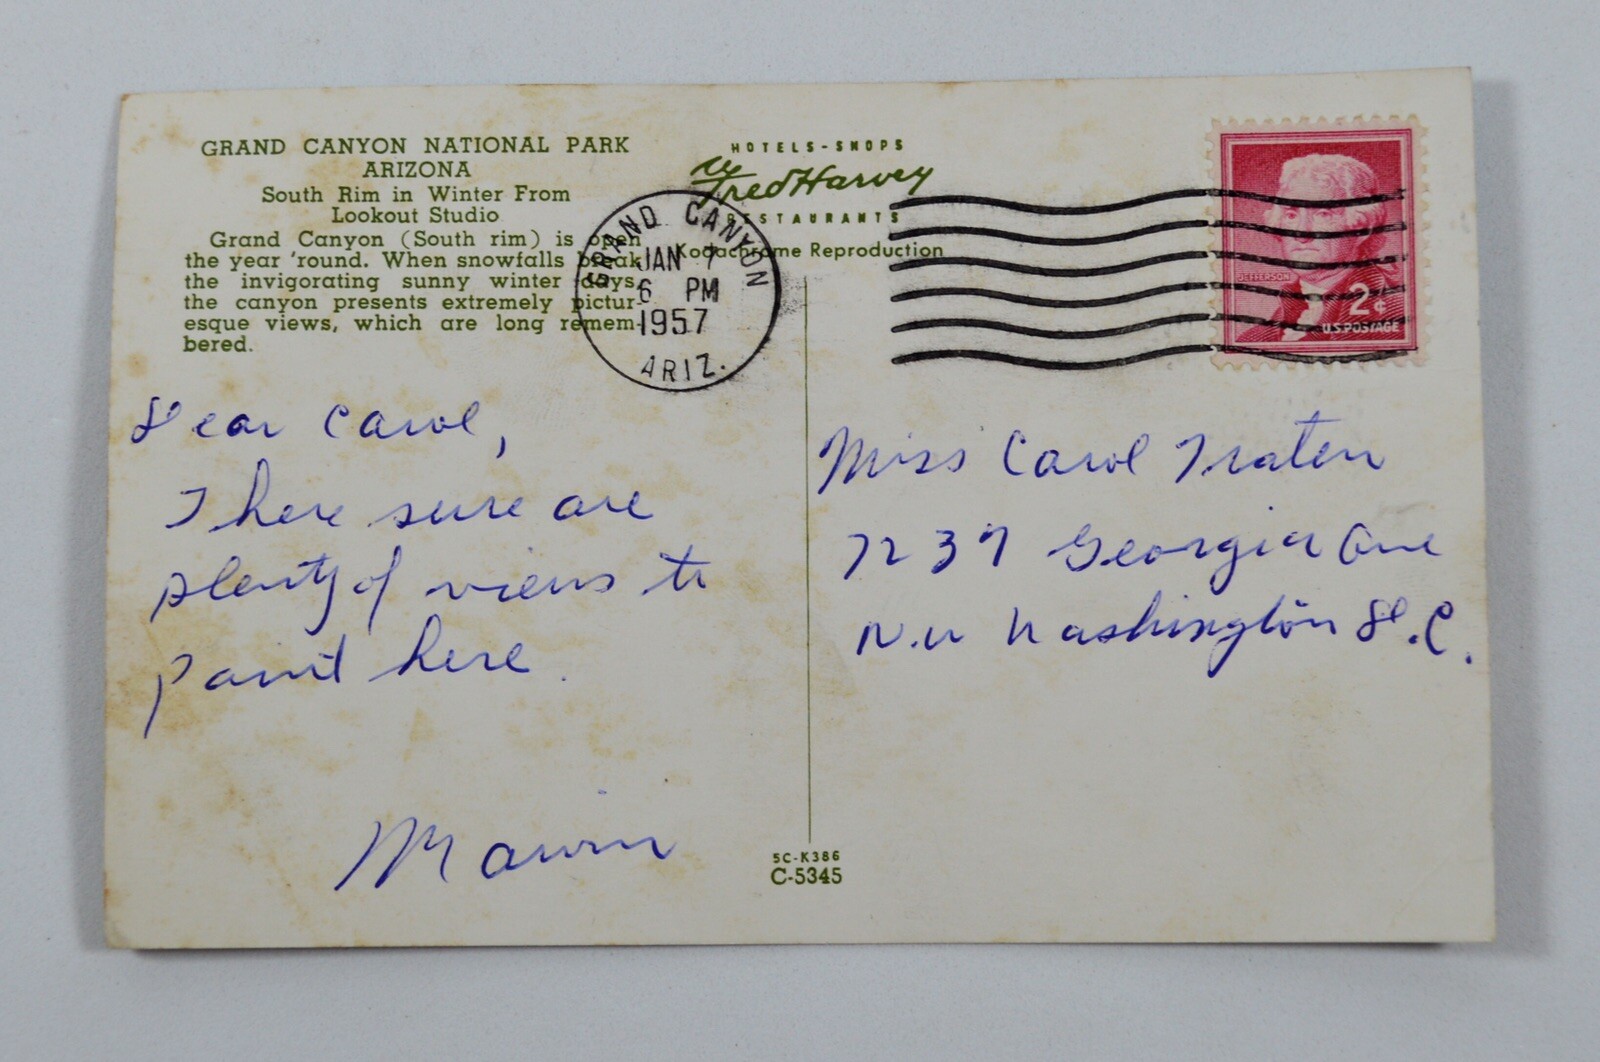 GRAND CANYON NATIONAL PARK
ARIZONA
South Rim in Winter From
Lookout Studio
Grand Canyon (South rim) is open
the year 'round. When snowfalls break
the invigorating sunny winter days,
the canyon presents extremely pictur-
esque views, which are long remem-
bered.
HOTELS-SHOPS
Fred Harvey
RESTAURANTS
Kodachrome Reproduction
GRAND CANYON
JAN 7
6 PM
1957
ARIZ.
JEFFERSON
2¢
U.S. POSTAGE
Dear Carol,
There sure are
plenty of views to
paint here.
Marvin
Miss Carol Traten
7237 Georgia Ave
N.W Washington D.C.
5C-K386
C-5345